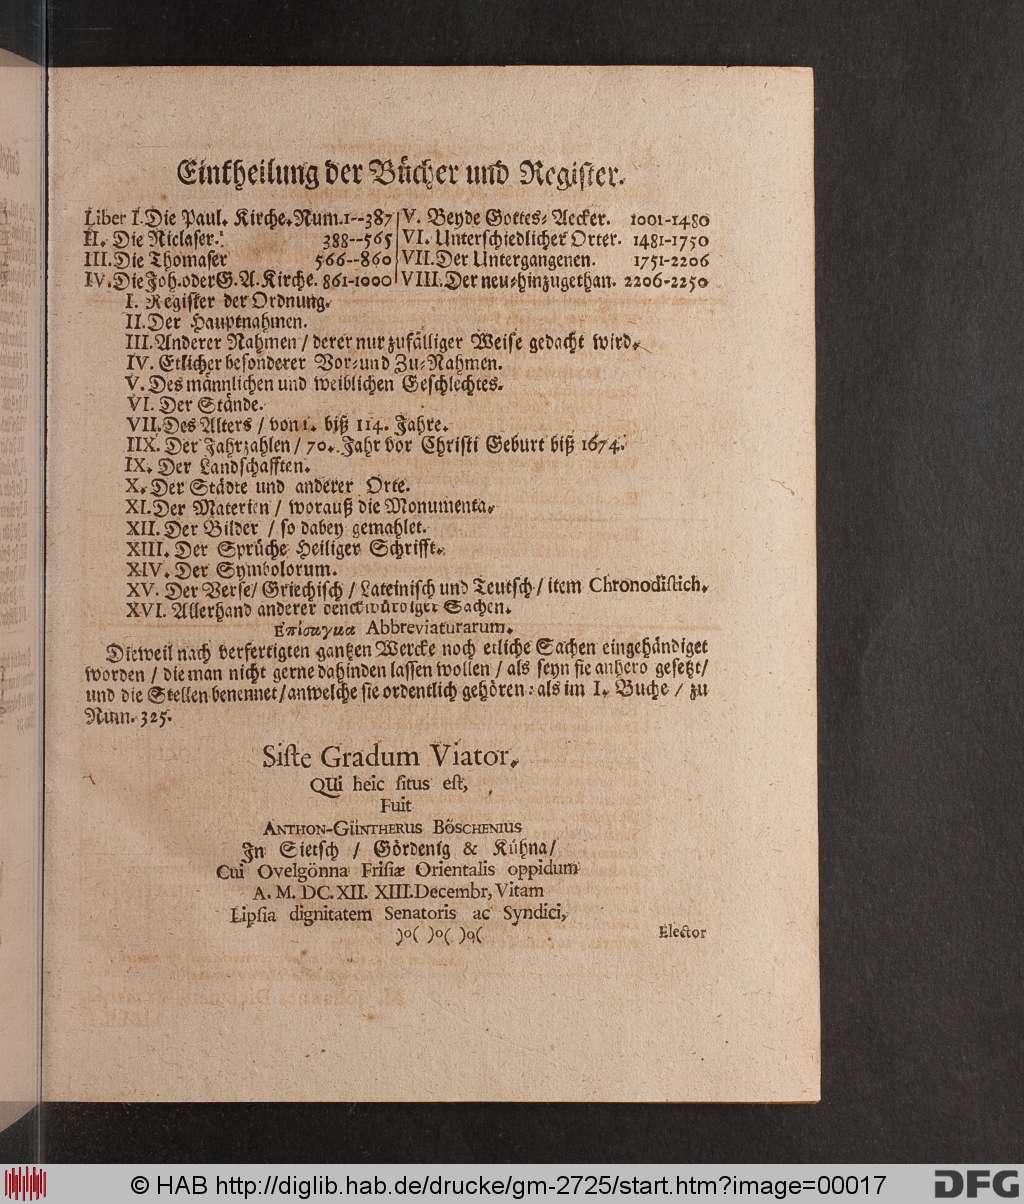 Eintheilung der Bücher und Register.
Liber I. Die Paul. Kirche. Num. 1--387
II. Die Niclaser. 388--565
III. Die Thomaser 566--860
IV. Die Joh. oder G. A. Kirche. 861-1000
V. Beyde Gottes-Aecker. 1001-1480
VI. Unterschiedlicher Orter. 1481-1750
VII. Der Untergangenen. 1751-2206
VIII. Der neu-hinzugethan. 2206-2250
I. Register der Ordnung.
II. Der Hauptnahmen.
III. Anderer Nahmen / derer nur zufälliger Weise gedacht wird.
IV. Etlicher besonderer Vor- und Zu-Nahmen.
V. Des männlichen und weiblichen Geschlechtes.
VI. Der Stände.
VII. Des Alters / von 1. biß 114. Jahre.
IIX. Der Jahrzahlen / 70. Jahr vor Christi Geburt biß 1674.
IX. Der Landschafften.
X. Der Städte und anderer Orte.
XI. Der Materien / worauß die Monumenta.
XII. Der Bilder / so dabey gemahlet.
XIII. Der Sprüche Heiliger Schrifft.
XIV. Der Symbolorum.
XV. Der Verse / Griechisch / Lateinisch und Teutsch / item Chronodistich.
XVI. Allerhand anderer denckwürdiger Sachen.
Επίσαγμα Abbreviaturarum.
Dieweil nach verfertigten gantzen Wercke noch etliche Sachen eingehändiget
worden / die man nicht gerne dahinden lassen wollen / als seyn sie anhero gesetzt /
und die Stellen benennet / an welche sie ordentlich gehören: als im I. Buche / zu
Num. 325.
Siste Gradum Viator.
QUi heic situs est,
Fuit
ANTHON-GüNTHERUS BöSCHENIUS
In Sietsch / Gördenig & Kühna /
Cui Ovelgönna Frisiæ Orientalis oppidum
A. M. DC. XII. XIII. Decembr, Vitam
Lipsia dignitatem Senatoris ac Syndici,
)o( )o( )o(
Elector
© HAB http://diglib.hab.de/drucke/gm-2725/start.htm?image=00017
DFG